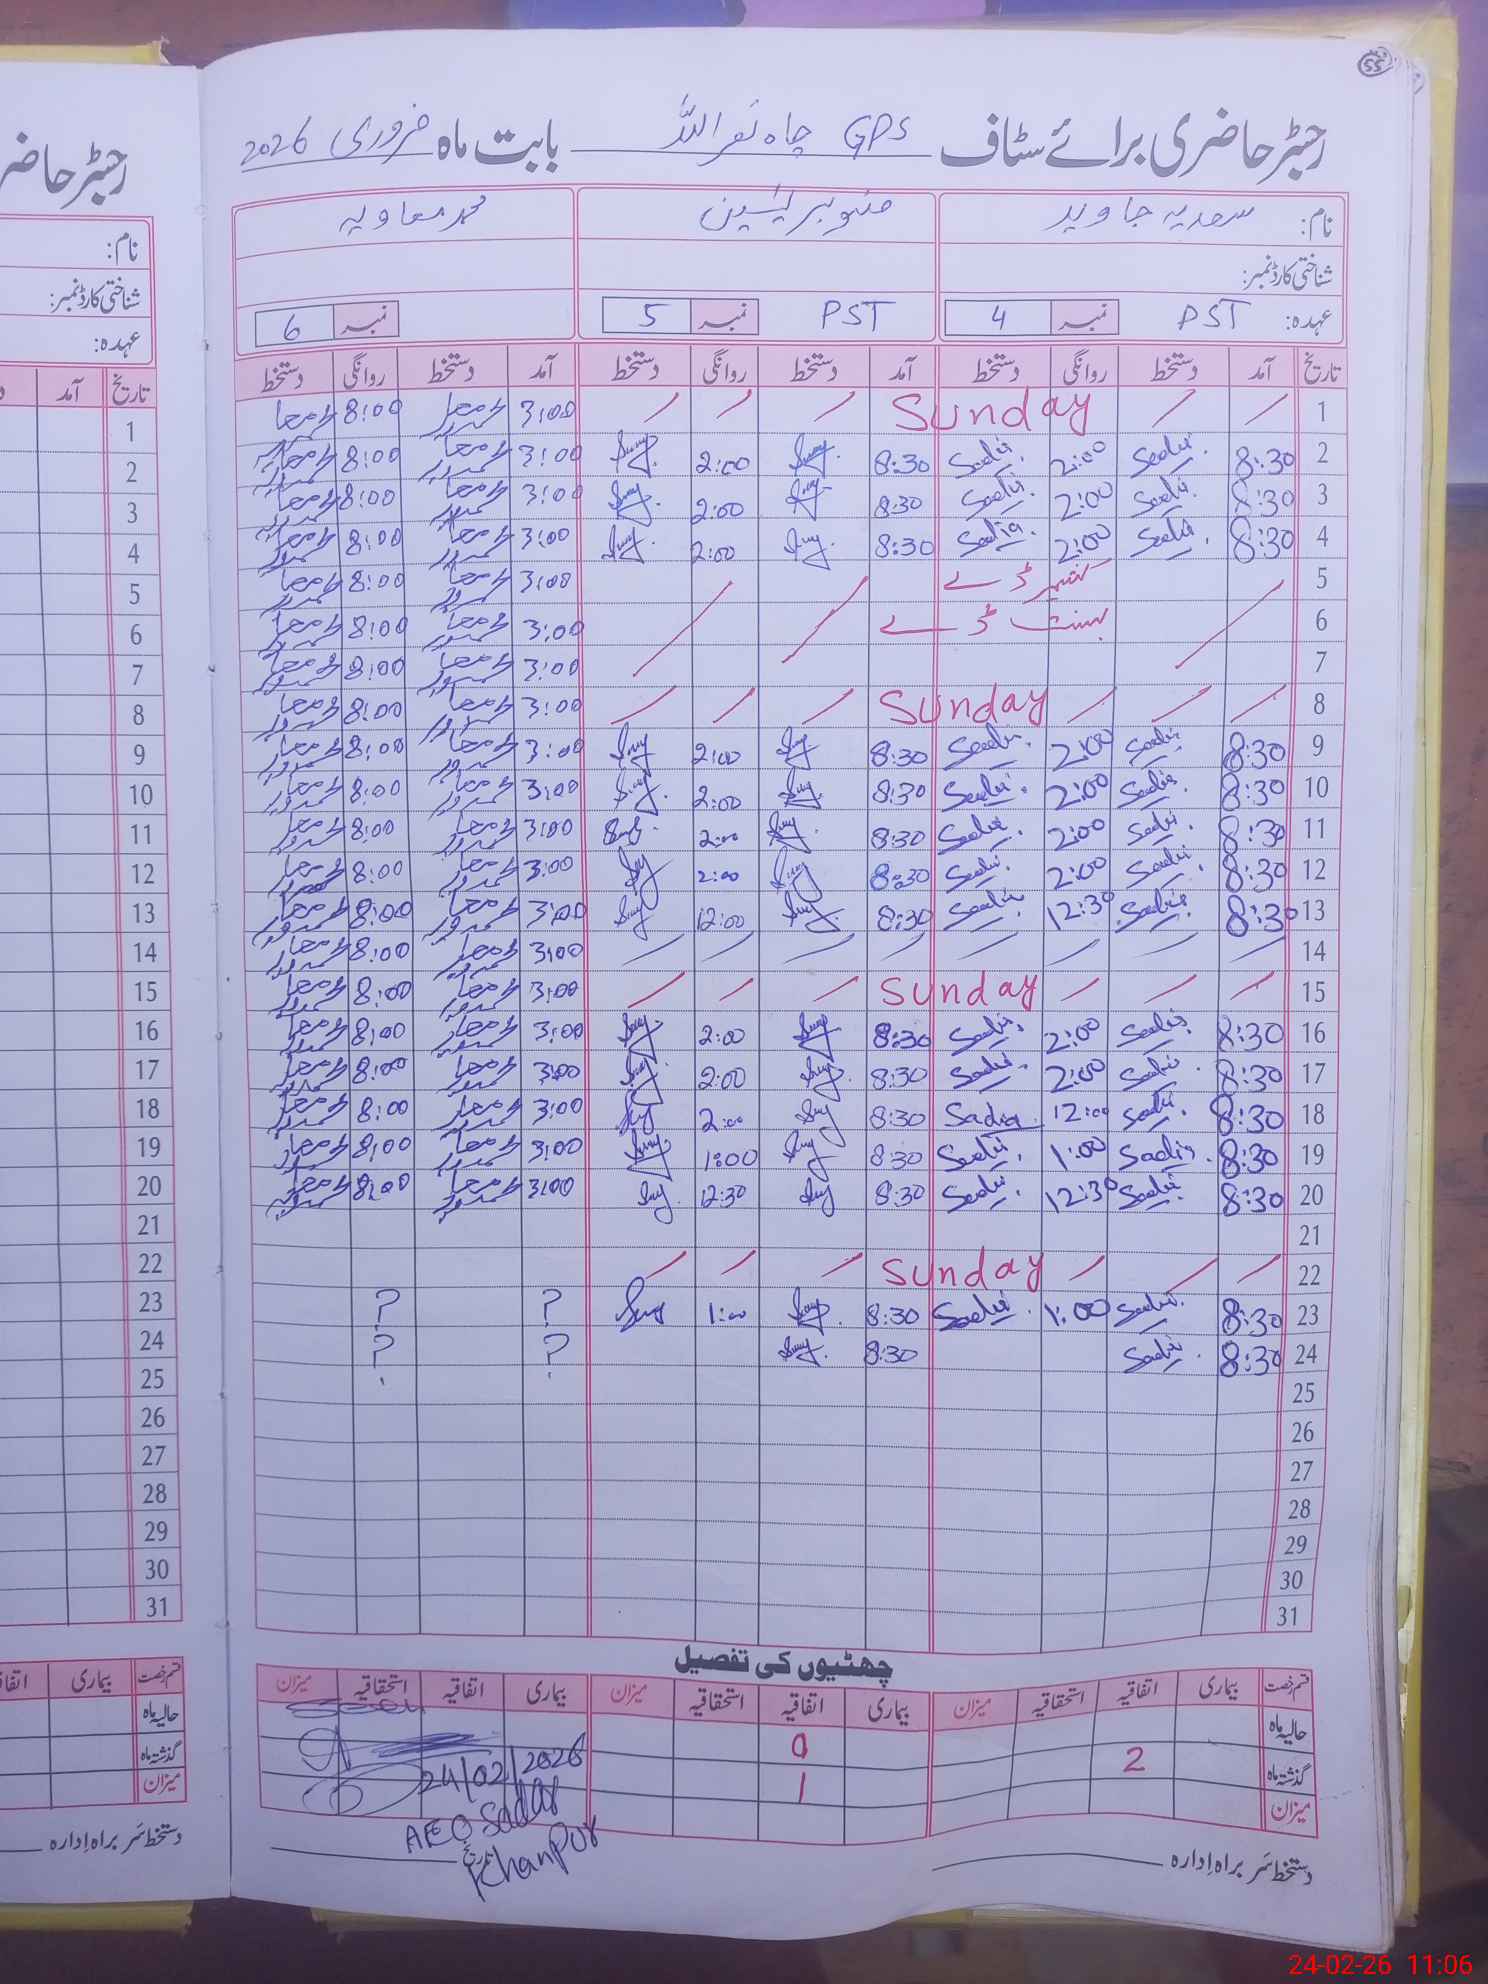 55
رجسٹر حاضری برائے سٹاف GPS چاہ نصراللہ بابت ماہ فروری 2026
نام: سعدیہ جاوید محمد معاویہ
شناختی کارڈ نمبر:
عہدہ: PST نمبر 4 PST نمبر 5 نمبر 6
تاریخ آمد دستخط روانگی دستخط آمد دستخط روانگی دستخط آمد دستخط روانگی دستخط
1 Sunday 3:00 8:00
2 8:30 Sadia 2:00 Sadia 8:30 2:00 3:00 8:00
3 8:30 Sadia 2:00 Sadia 8:30 2:00 3:00 8:00
4 8:30 Sadia 2:00 Sadia 8:30 2:00 3:00 8:00
5 کشمیر ڈے 3:00 8:00
6 بسنت ڈے 3:00 8:00
7 3:00 8:00
8 Sunday 3:00 8:00
9 8:30 Sadia 2:00 Sadia 8:30 2:00 3:00 8:00
10 8:30 Sadia 2:00 Sadia 8:30 2:00 3:00 8:00
11 8:30 Sadia 2:00 Sadia 8:30 2:00 3:00 8:00
12 8:30 Sadia 2:00 Sadia 8:30 2:00 3:00 8:00
13 8:30 Sadia 12:30 Sadia 8:30 12:00 3:00 8:00
14 3:00 8:00
15 Sunday 3:00 8:00
16 8:30 Sadia 2:00 Sadia 8:30 2:00 3:00 8:00
17 8:30 Sadia 2:00 Sadia 8:30 2:00 3:00 8:00
18 8:30 Sadia 12:00 Sadia 8:30 2:00 3:00 8:00
19 8:30 Sadia 1:00 Sadia 8:30 1:00 3:00 8:00
20 8:30 Sadia 12:30 Sadia 8:30 12:30 3:00 8:00
21
22 Sunday
23 8:30 Sadia 1:00 Sadia 8:30 1:00 ? ?
24 8:30 Sadia 8:30 ? ?
25
26
27
28
29
30
31
چھٹیوں کی تفصیل
قسم رخصت بیماری اتفاقیہ استحقاقیہ میزان بیماری اتفاقیہ استحقاقیہ میزان بیماری اتفاقیہ استحقاقیہ میزان
حالیہ ماہ 0
گذشتہ ماہ 2 1
میزان
24/02/2026
AEO Sadar
Khanpur
دستخط سربراہ ادارہ تاریخ
رجسٹر حاضر
نام:
شناختی کارڈ نمبر:
عہدہ:
تاریخ آمد
1
2
3
4
5
6
7
8
9
10
11
12
13
14
15
16
17
18
19
20
21
22
23
24
25
26
27
28
29
30
31
قسم رخصت بیماری
حالیہ ماہ
گذشتہ ماہ
میزان
دستخط سربراہ ادارہ
24-02-26 11:06